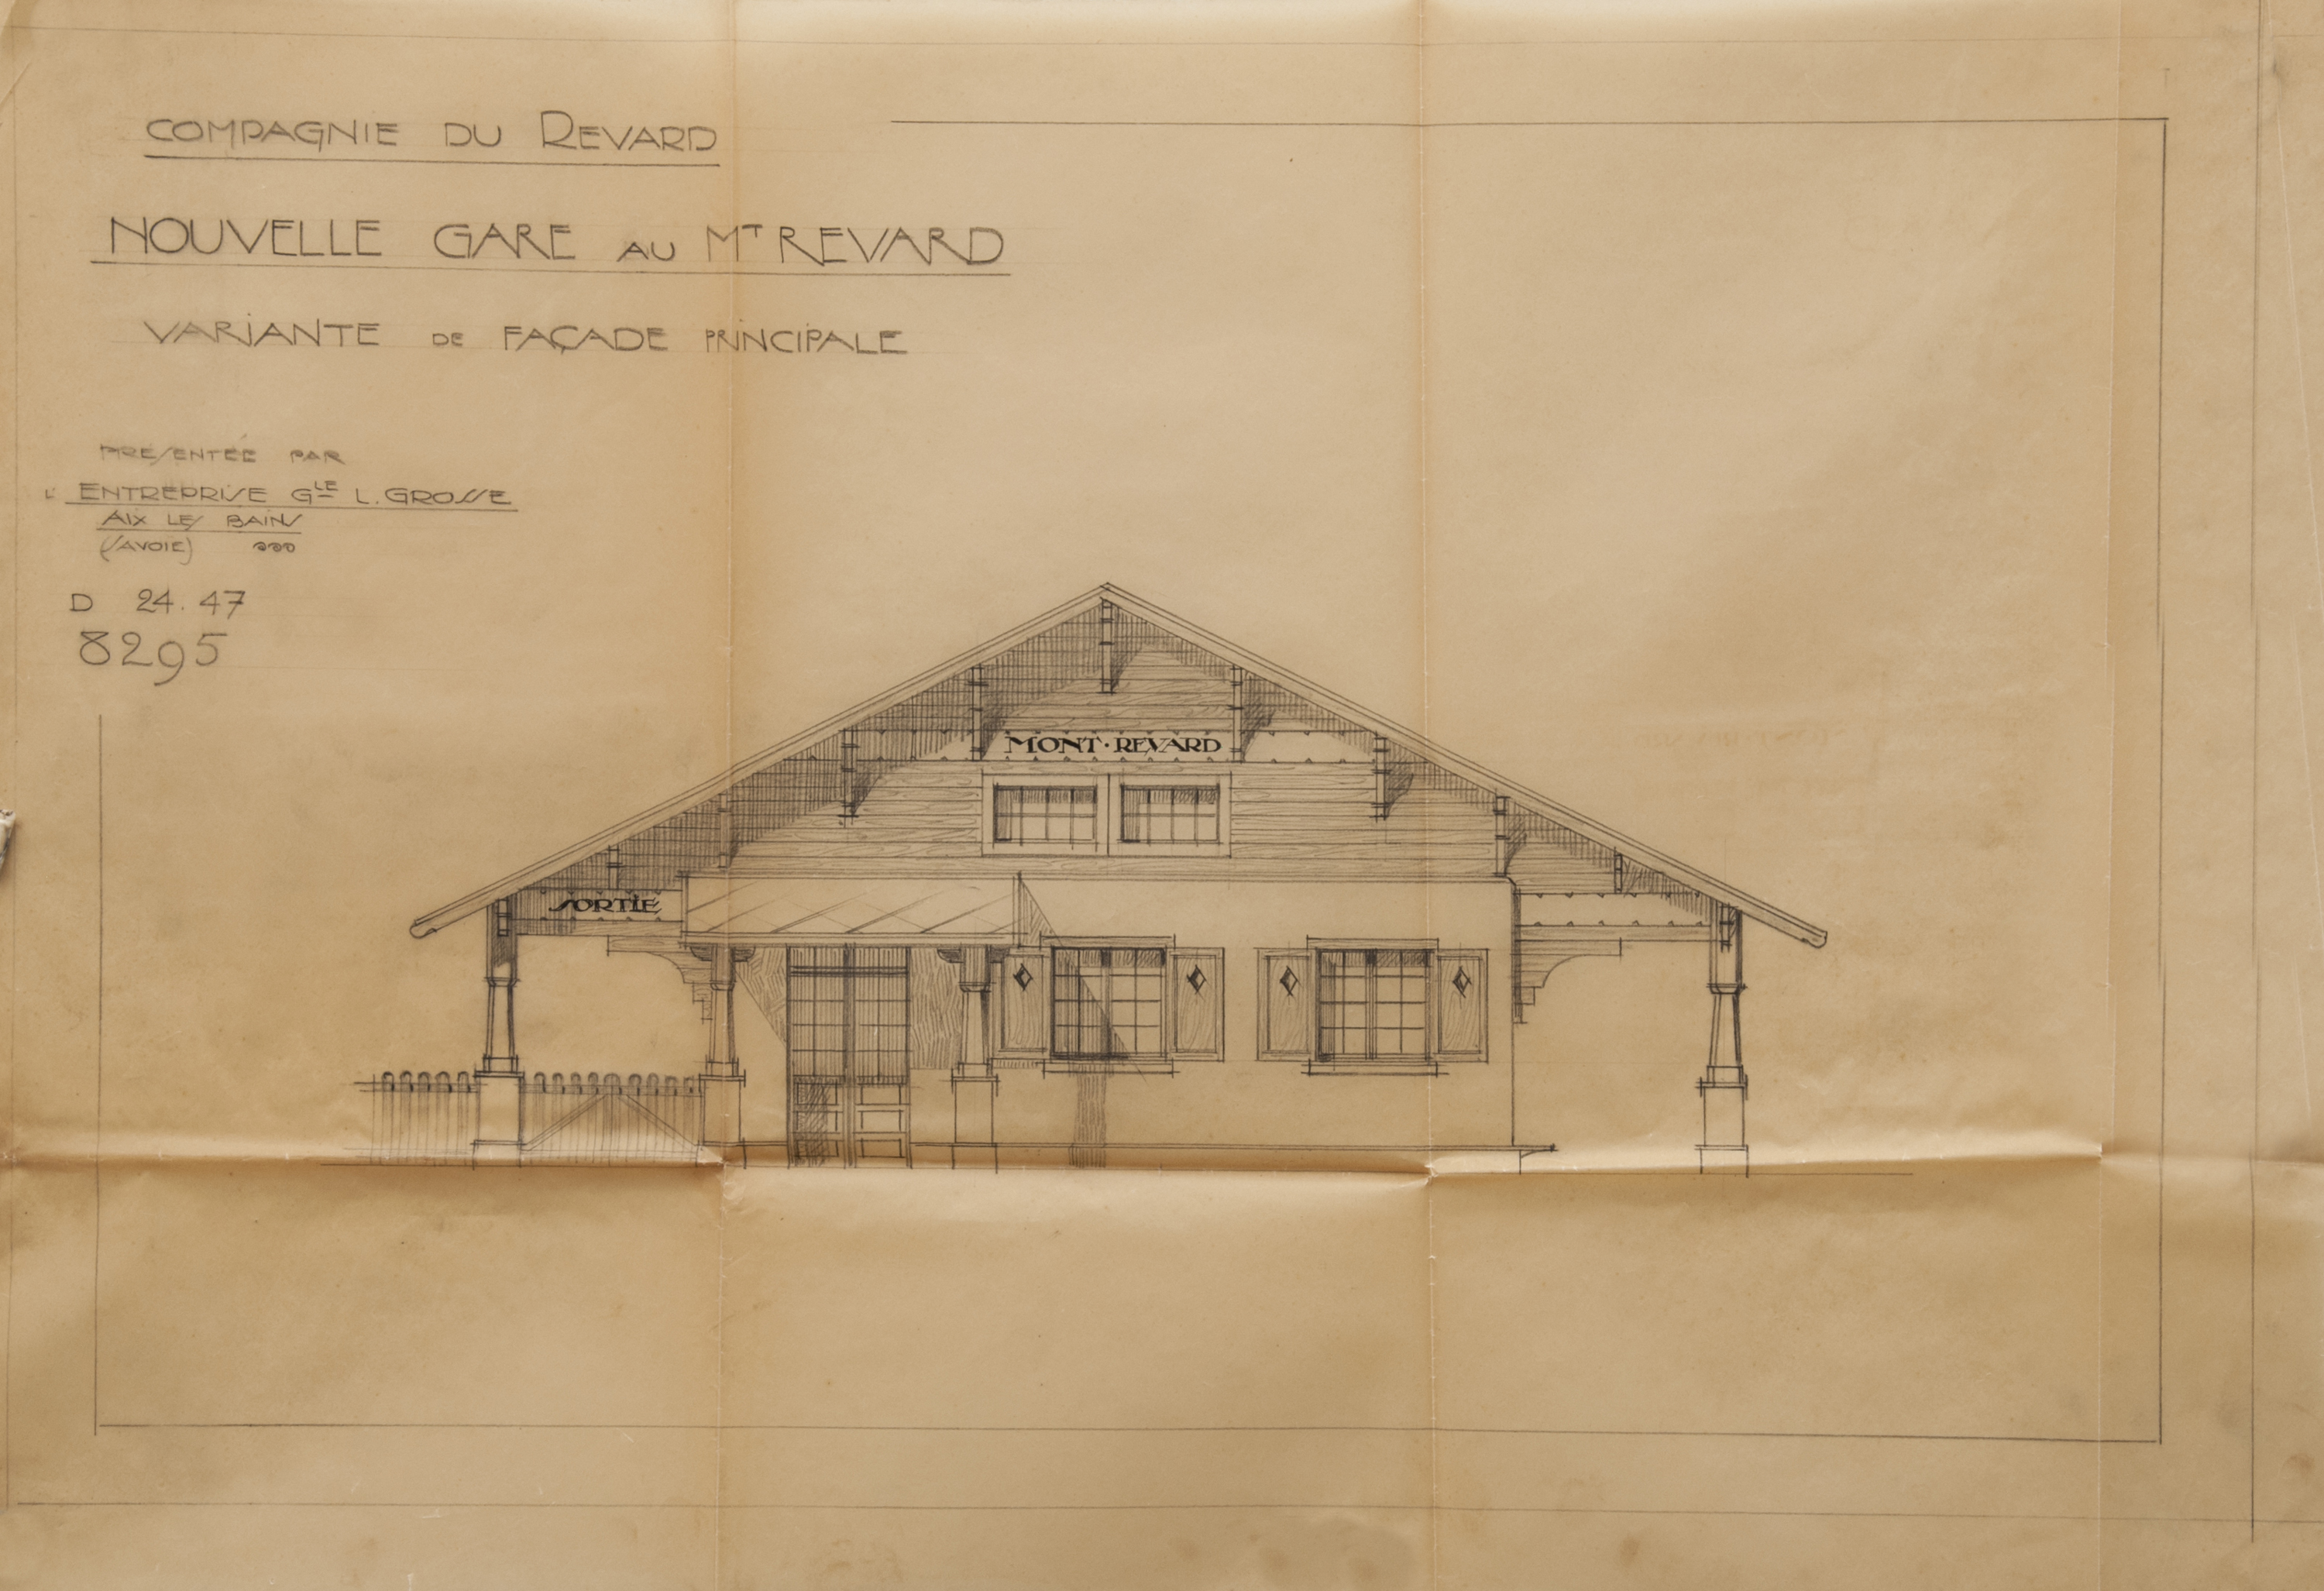 COMPAGNIE DU REVARD
NOUVELLE GARE AU MT REVARD
VARIANTE DE FAÇADE PRINCIPALE
PRESENTÉE PAR
L' ENTREPRISE GLE L. GROSSE
AIX LES BAINS
(SAVOIE)
D 24.47
8295
MONT · REVARD
SORTIE